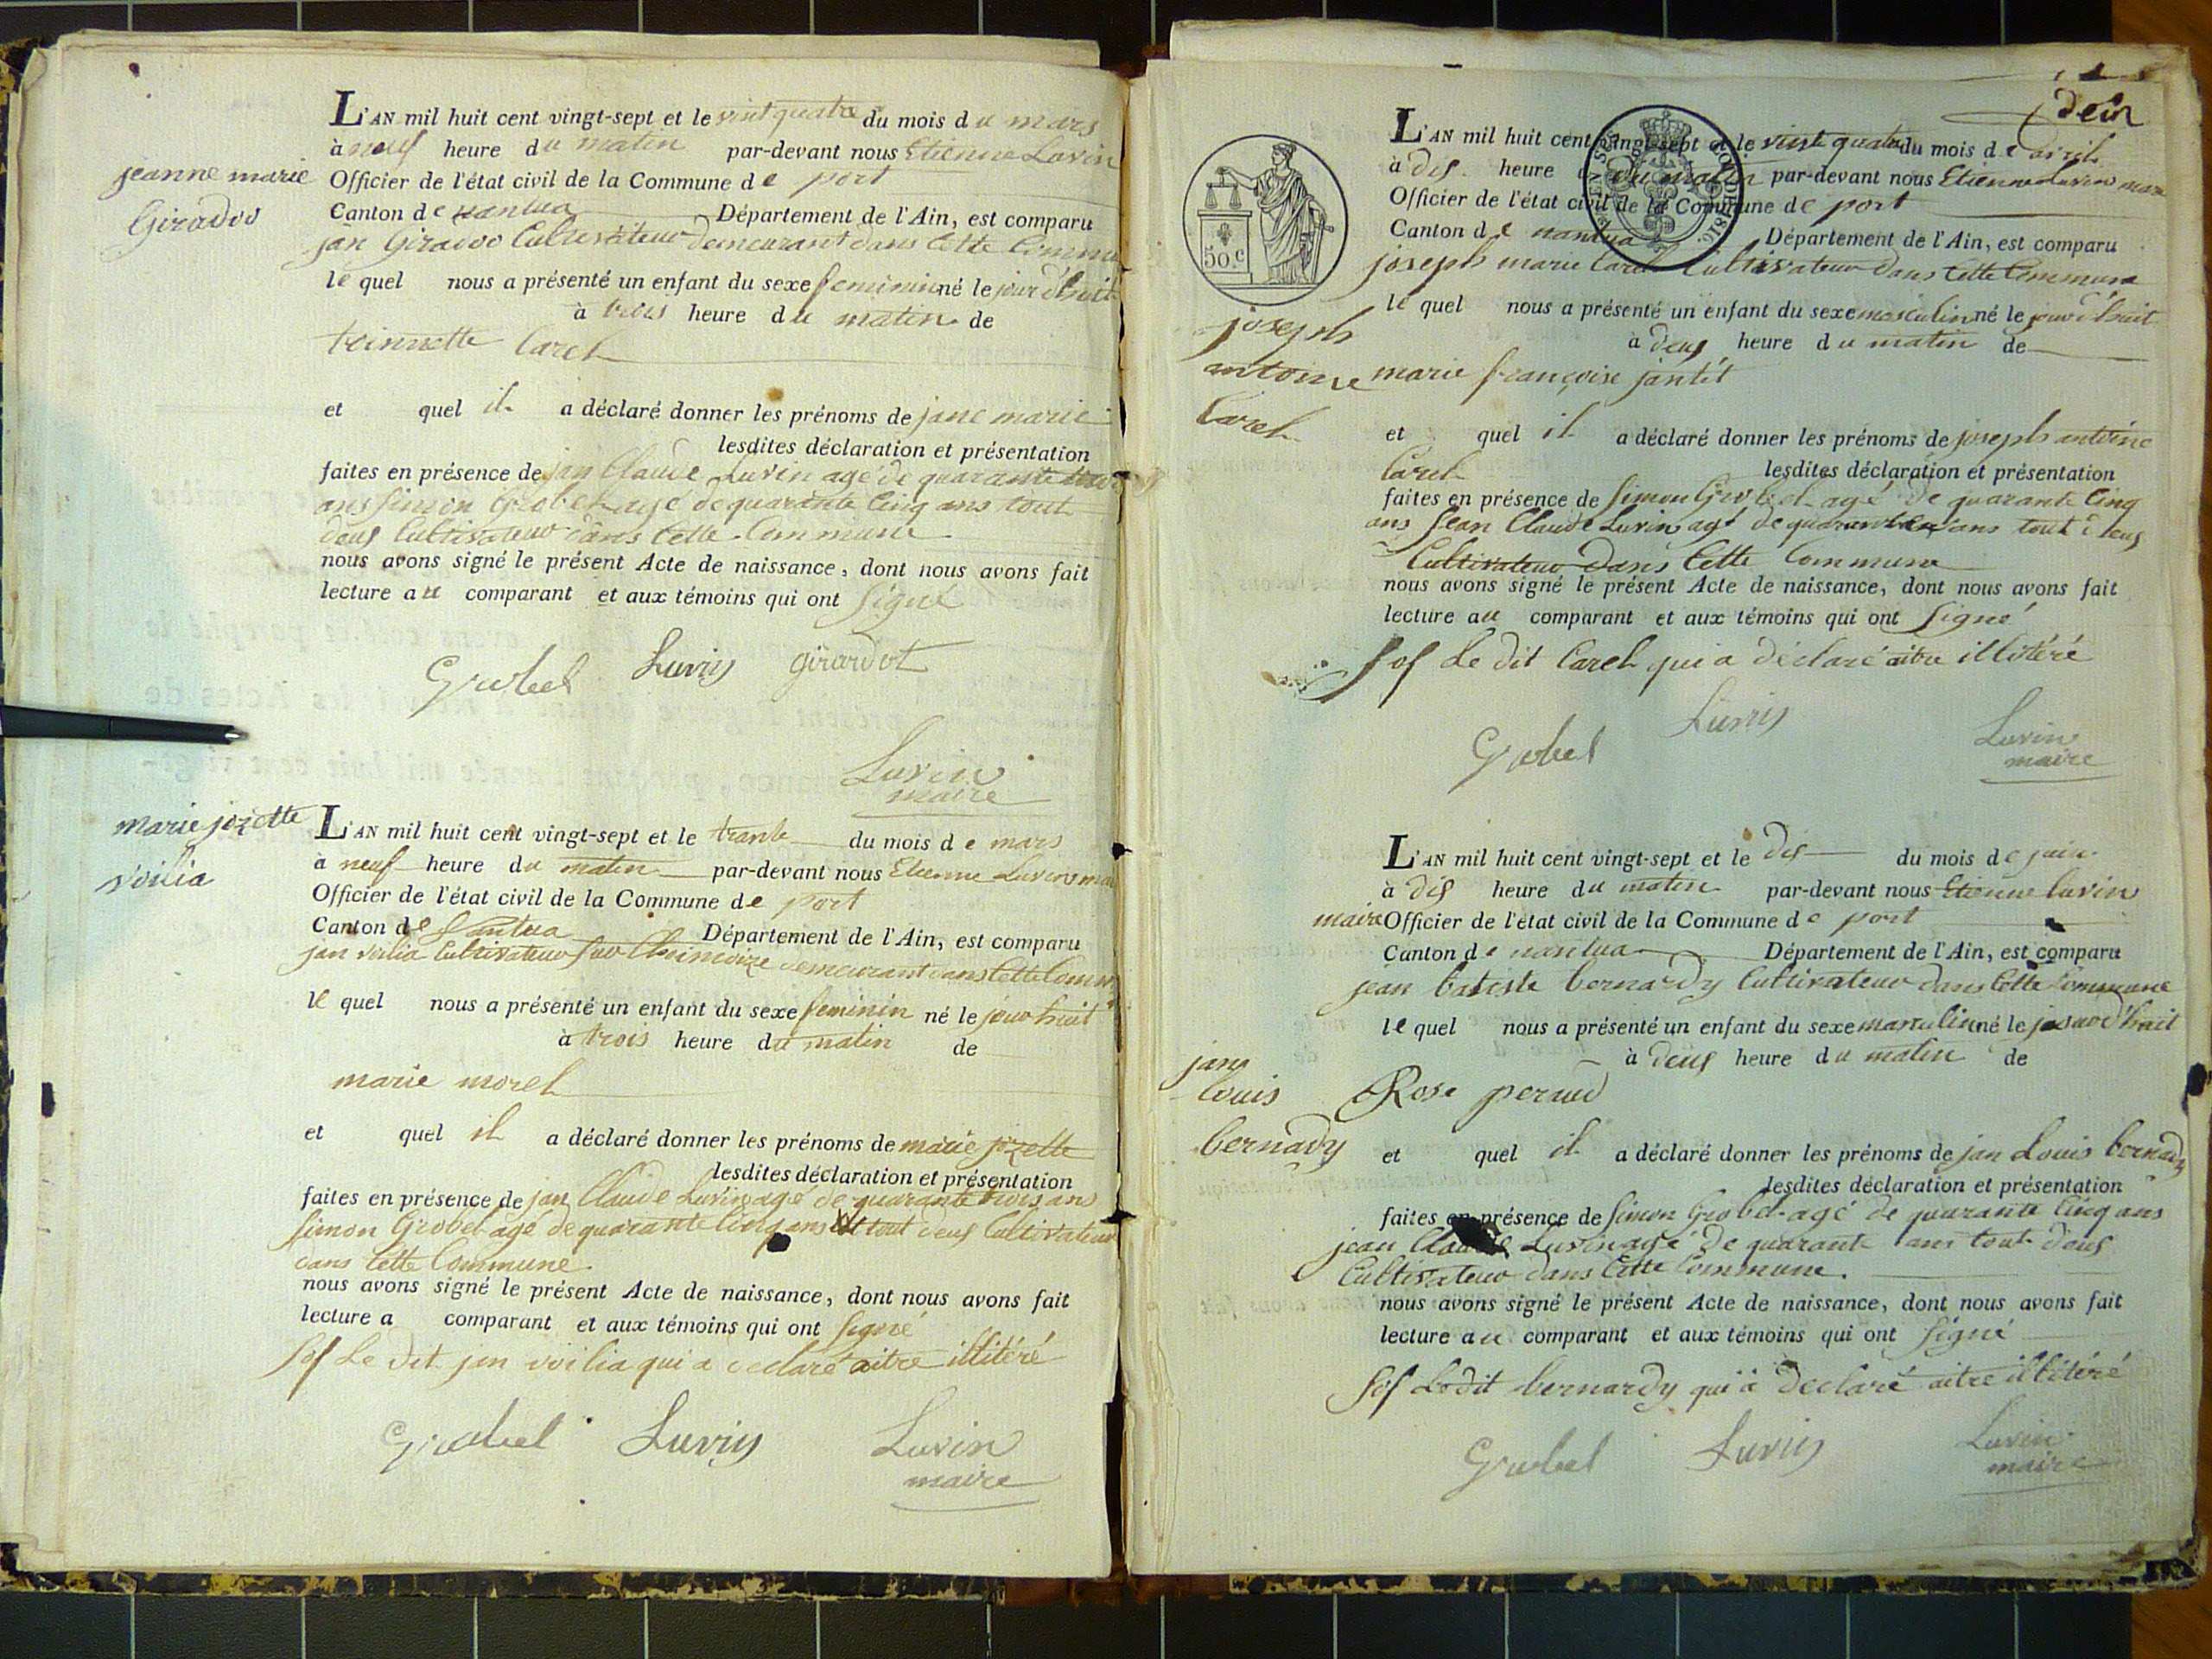 jeanne marie
Girador
L'AN mil huit cent vingt-sept et le vint quatre du mois du mars
à neuf heure du matin par-devant nous Etienne Luvin
Officier de l'état civil de la Commune de port
Canton de nantua Département de l'Ain, est comparu
jan Girador Cultivateur demeurant dans Cette Commu
le quel nous a présenté un enfant du sexe feminin né le jour d'huit
à trois heure du matin de
toinnette Carel
et quel il a déclaré donner les prénoms de jane marie
lesdites déclaration et présentation
faites en présence de jan Claude Luvin agé de quarante trois
ans Simon Grobel agé de quarante Cinq ans tout
deus Cultivateur dans Cette Commune
nous avons signé le présent Acte de naissance, dont nous avons fait
lecture au comparant et aux témoins qui ont Signé
Grobel Luvin girardot
Luvin
maire
marie jozette
voilia
L'AN mil huit cent vingt-sept et le trante du mois de mars
a neuf heure du matin par-devant nous Etienne Luvin mai
Officier de l'état civil de la Commune de port
Canton de nantua Département de l'Ain, est comparu
jan voilia Cultivateur demeurant dans Cette Comm
le quel nous a présenté un enfant du sexe feminin né le jour huit
à trois heure du matin de
marie morel
et quel il a déclaré donner les prénoms de marie jozette
lesdites déclaration et présentation
faites en présence de jan Claude Luvin agé de quarante trois ans
Simon Grobel agé de quarante Cinq ans tout deus Cultivateur
dans Cette Commune.
nous avons signé le présent Acte de naissance, dont nous avons fait
lecture a comparant et aux témoins qui ont Signé
Sof Le dit jan voilia qui a declaré aitre illitéré
Grobel Luvin Luvin
maire
deux
50.c
L'AN mil huit cent vingt-sept et le vint quatre du mois de avril
à dis heure du matin par-devant nous Etienne Luvin maire
Officier de l'état civil de la Commune de port
Canton de nantua Département de l'Ain, est comparu
joseph marie Carel Cultivateur dans Cette Commune
le quel nous a présenté un enfant du sexe masculin né le jour d'huit
à deus heure du matin de
joseph
antoine
Carel
marie françoise jantét
et quel il a déclaré donner les prénoms de joseph antoine
Carel lesdites déclaration et présentation
faites en présence de Simon Grobel agé de quarante Cinq
ans Jean Claude Luvin agé de quarante ans tout deus
Cultivateur dans Cette Commune
nous avons signé le présent Acte de naissance, dont nous avons fait
lecture au comparant et aux témoins qui ont Signé
Sof Le dit Carel qui a déclaré aitre illitéré
Grobel Luvin Luvin
maire
L'AN mil huit cent vingt-sept et le dis du mois de juin
à dis heure du matin par-devant nous Etienne Luvin
maire Officier de l'état civil de la Commune de port
Canton de nantua Département de l'Ain, est comparu
jean batiste bernardy Cultivateur dans Cette Commune
le quel nous a présenté un enfant du sexe masculin né le jour d'huit
à deus heure du matin de
jan
Louis
bernady
Rose peraud
et quel il a déclaré donner les prénoms de jan Louis bernady
lesdites déclaration et présentation
faites en présence de Simon Grobel agé de quarante Cinq ans
jean Claude Luvin agé de quarante ans tout deus
Cultivateur dans Cette Commune.
nous avons signé le présent Acte de naissance, dont nous avons fait
lecture au comparant et aux témoins qui ont Signé
Sof Ledit bernardy qui a declaré aitre illitéré
Grobel Luvin Luvin
maire